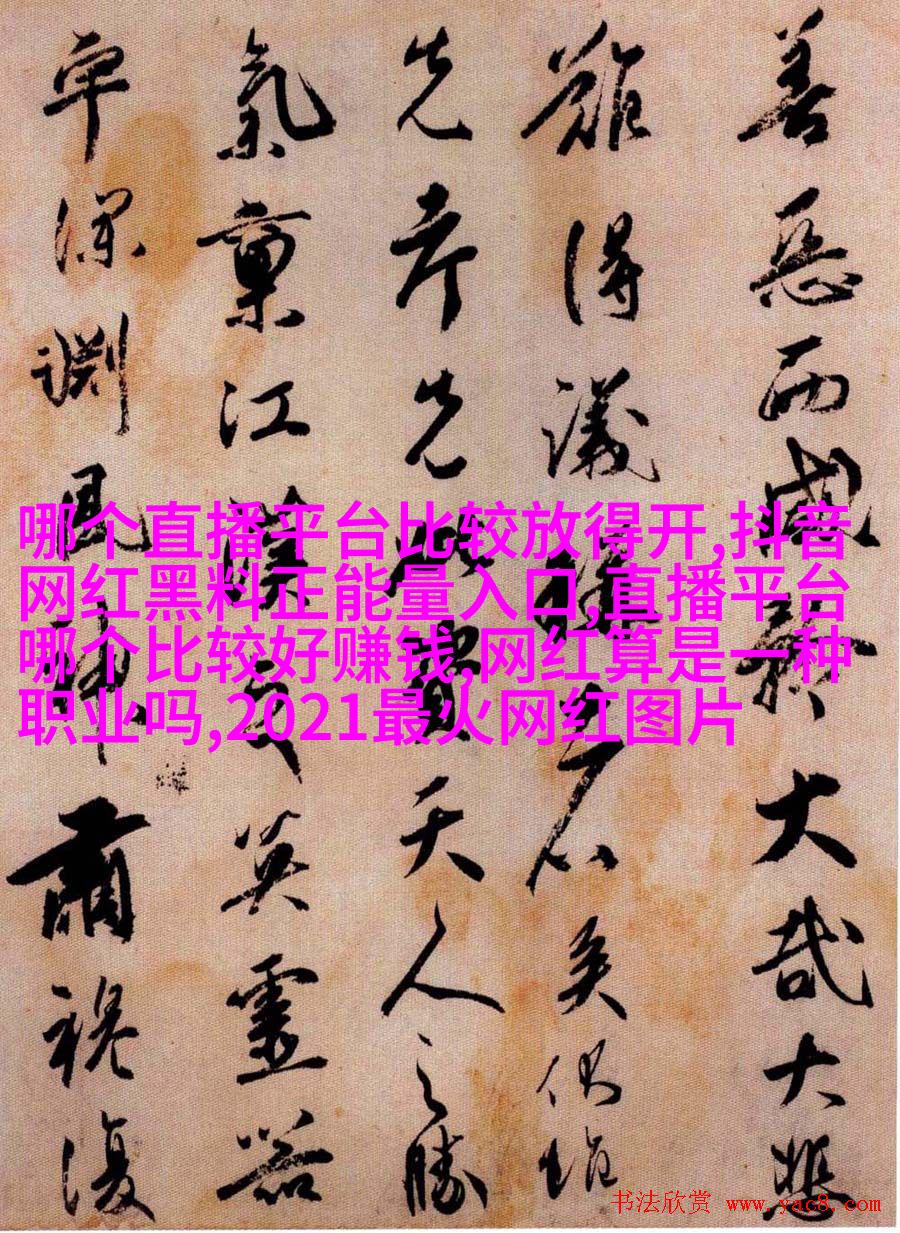 哪个直播平台比较放得开,抖音
网红黑料正能量入口,直播平台
哪个比较好赚钱,网红算是一种
职业吗,2021最火网红图片
善惡而 大哉大悲
難得議
先 先 天人之勝
氣稟江 英靈器
宇深淵風神爾 復
书法欣赏 www.yac8.com